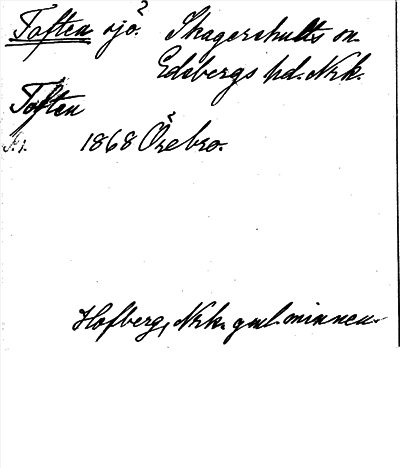 Toften sjö? Skagershults sn.
Edsbergs hd. Nrk.
Toften
1868 Örebro.
Hofberg, Nrk. gml. minnen.